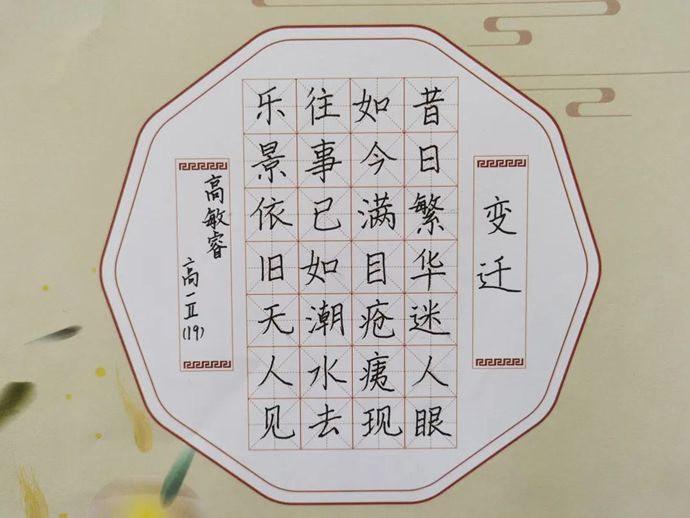 变迁
昔日繁华迷人眼
如今满目疮痍现
往事已如潮水去
乐景依旧天人见
高敏睿
高一Ⅱ(19)